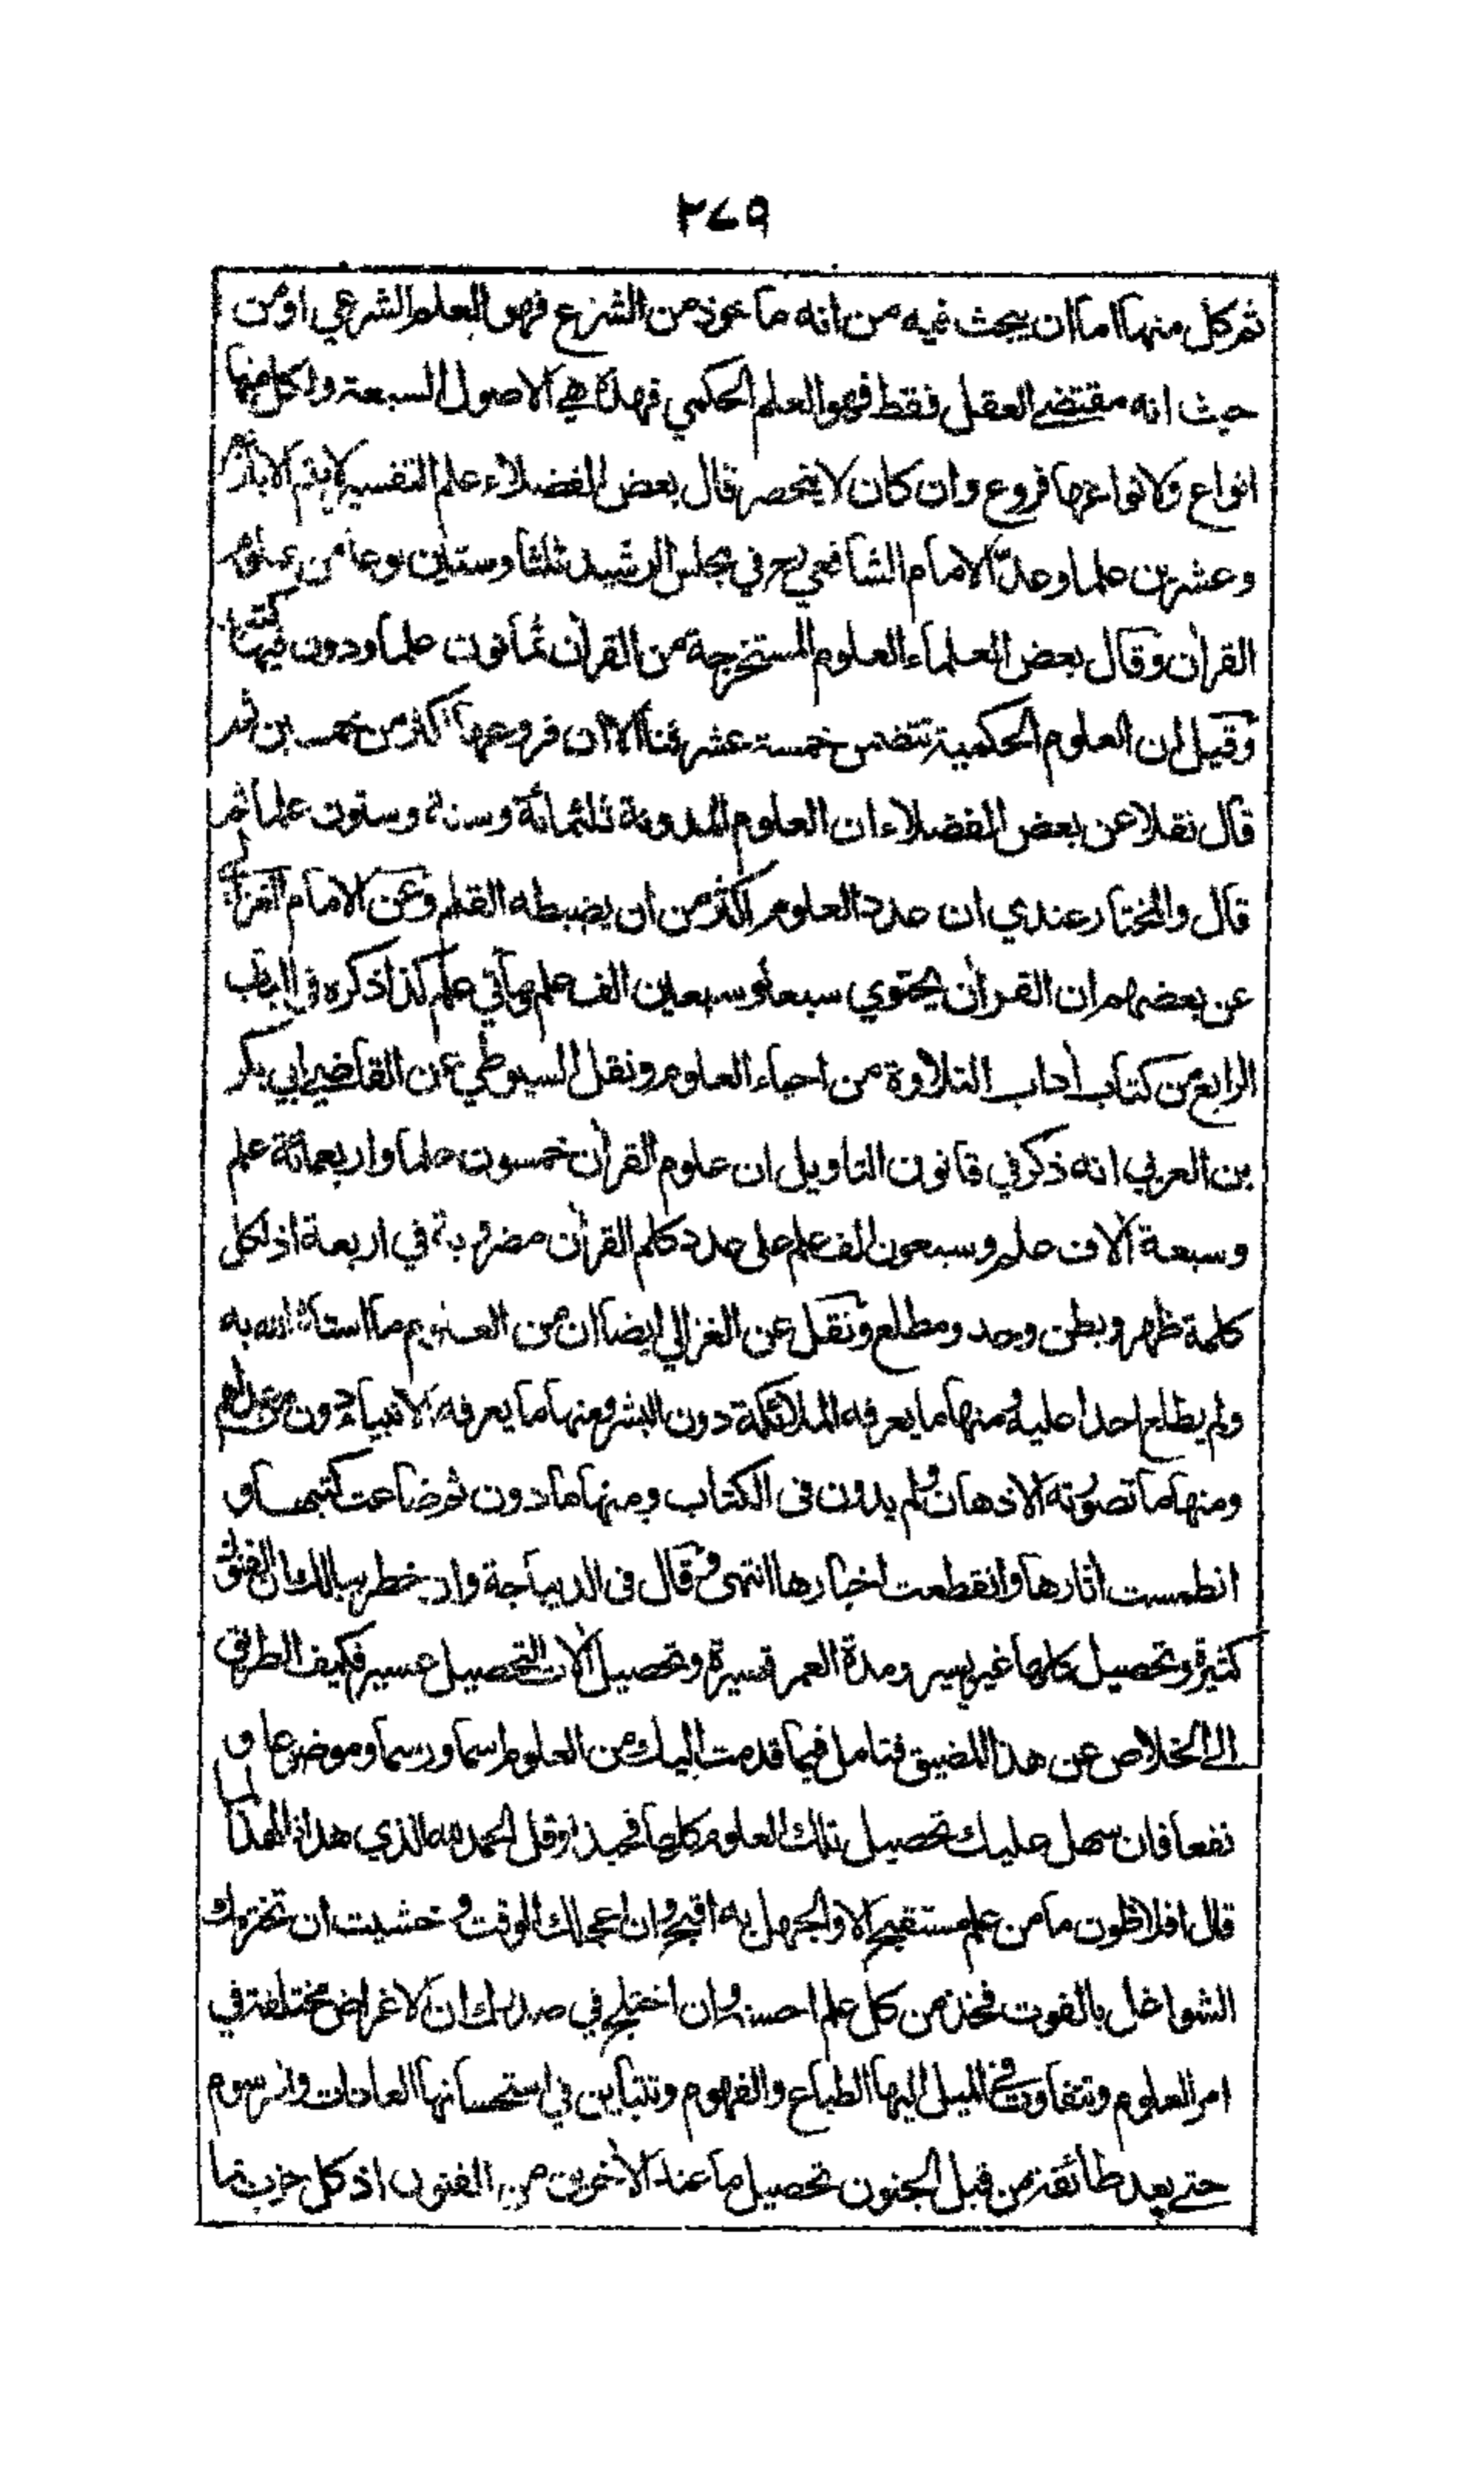 ٢٧٩
ثم كل منها اما ان يبحث فيه من انه ماخوذ من الشرع فهو العلم الشرعي او من
حيث انه مقتضى العقل فقط فهو العلم الحكمي فهذه هي الاصول السبعة ولكل منها
انواع ولانواعها فروع وان كان لا ينحصر قال بعض الفضلاء علم التفسير لا يتم الا باربعة
وعشرين علما وعد الامام الشافعي رح في مجلس الرشيد ثلثا وستين نوعا من علوم
القرآن وقال بعض العلماء العلوم المستخرجة من القرآن ثمانون علما ودون فيها كتبا
وقيل ان العلوم الحكمية تتضمن خمسة عشر فنا الا ان فروعها اكثر من خمسين ثم
قال نقلا عن بعض الفضلاء ان العلوم المدونة ثلثمائة وستة وستون علما ثم
قال والمختار عندي ان عدد العلوم اكثر من ان يضبطه القلم وعن الامام الغزالي
عن بعضهم ان القرآن يحتوي سبعا وسبعين الف علم ومأتي علم كذا ذكره في الباب
الرابع من كتاب آداب التلاوة من احياء العلوم ونقل السيوطي عن القاضي ابي بكر
بن العربي انه ذكر في قانون التاويل ان علوم القرآن خمسون علما واربعمائة علم
وسبعة آلاف علم وسبعون الف علم على عدد كلم القرآن مضروبة في اربعة اذ لكل
كلمة ظهر وبطن وحد ومطلع ونقل عن الغزالي ايضا ان من العلوم ما استاثر الله به
ولم يطلع احدا عليه ومنها ما يعرفه الملائكة دون البشر ومنها ما يعرفه الانبياء دون من عداهم
ومنها ما تصورته الاذهان ولم يدون في الكتاب ومنها ما دون ثم ضاعت كتبها و
انطمست آثارها وانقطعت اخبارها انتهى وقال في الديباجة وان خطر ببالك ان الفنون
كثيرة وتحصيل كلها غير يسير ومدة العمر قصيرة وتحصيل آلات التحصيل عسير فكيف الطريق
الى الخلاص عن هذا المضيق فتامل فيما قدمت اليك من العلوم اسما ورسما وموضوعا و
نفعا فان سهل عليك تحصيل تلك العلوم كلها فحبذا وقل الحمد لله الذي هدانا لهذا
قال افلاطون ما من علم مستقبح الا والجهل به اقبح وان اعجلك الوقت وخشيت ان تخترمك
الشواغل بالفوت فخذ من كل علم احسنه وان اختلج في صدرك ان الاغراض مختلفة في
امر العلوم وتتفاوت في الميل اليها الطباع والفهوم وتتباين في استحسانها العادات والرسوم
حتى يعد طائفة من قبل الجنون تحصيل ما عند الآخرين من الفنون اذ كل حزب بما